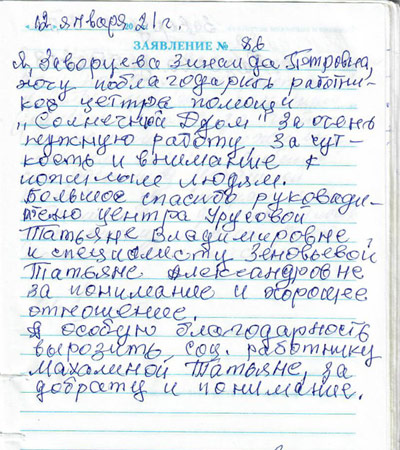 12 января 20 21 г.
ЗАЯВЛЕНИЕ № 86
Я, Заваруева Зинаида Петровна,
хочу поблагодарить работни-
ков центра помощи
"Солнечный Дом" за очень
нужную работу, за чут-
кость и внимание к
пожилым людям.
Большое спасибо руководи-
телю центра Урусовой
Татьяне Владимировне,
и специалисту Зеновьевой
Татьяне Александровне
за понимание и хорошее
отношение.
А особую благодарность
вырозить соц. работнику
Махалиной Татьяне, за
доброту и понимание.